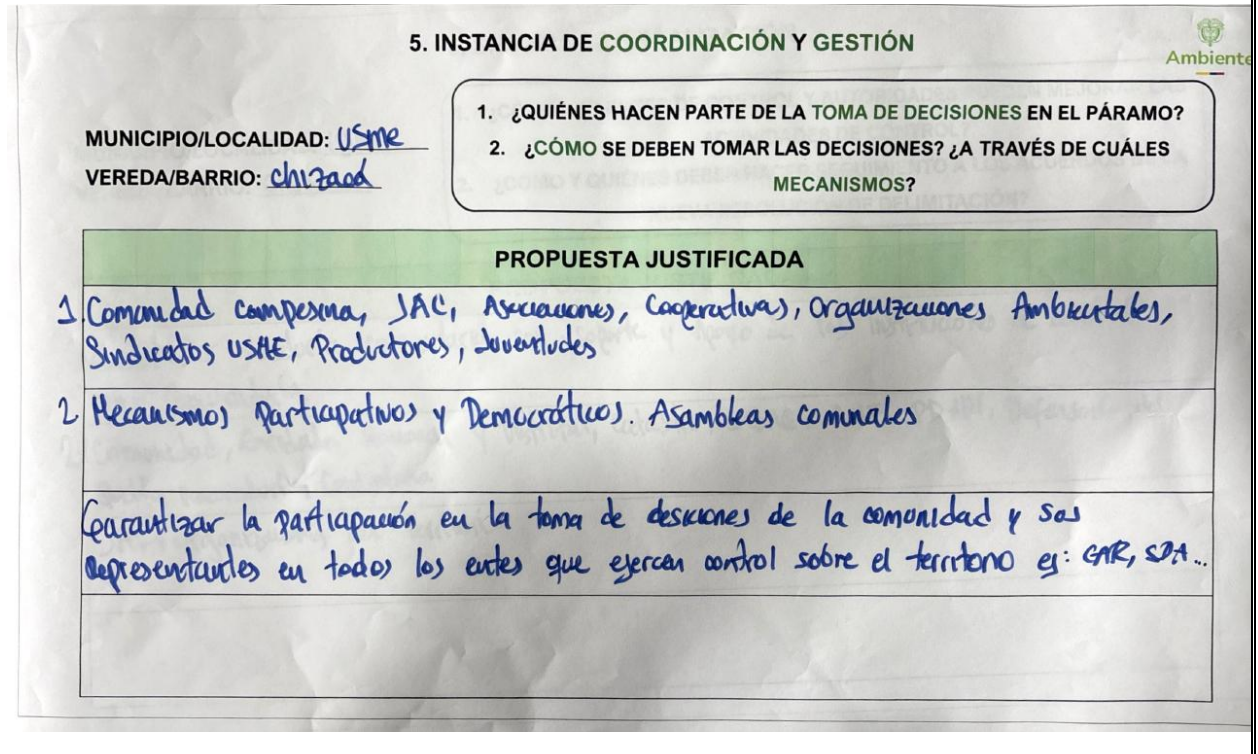 5. INSTANCIA DE COORDINACIÓN Y GESTIÓN
Ambiente
MUNICIPIO/LOCALIDAD: USme
VEREDA/BARRIO: chizacá
1. ¿QUIÉNES HACEN PARTE DE LA TOMA DE DECISIONES EN EL PÁRAMO?
2. ¿CÓMO SE DEBEN TOMAR LAS DECISIONES? ¿A TRAVÉS DE CUÁLES
MECANISMOS?
PROPUESTA JUSTIFICADA
1 Comunidad campesina, JAC, Asociaciones, Cooperativas, Organizaciones Ambientales,
Sindicatos USME, Productores, Juventudes
2 Mecanismos Participativos y Democráticos. Asambleas comunales
Garantizar la participación en la toma de desiciones de la comunidad y sus
Representantes en todos los entes que ejercen control sobre el territorio ej: CAR, SDA...